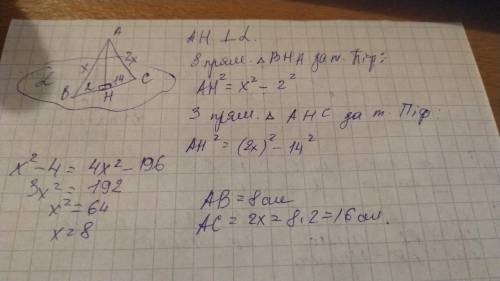 A
x
2x
α
2
14
B
H
C
AH ⊥ α.
З прям. △ BHA за т. Піф:
AH² = x² - 2²
З прям. △ AHC за т. Піф:
AH² = (2x)² - 14²
x² - 4 = 4x² - 196
3x² = 192
x² = 64
x = 8
AB = 8 см
AC = 2x = 8·2 = 16 см.